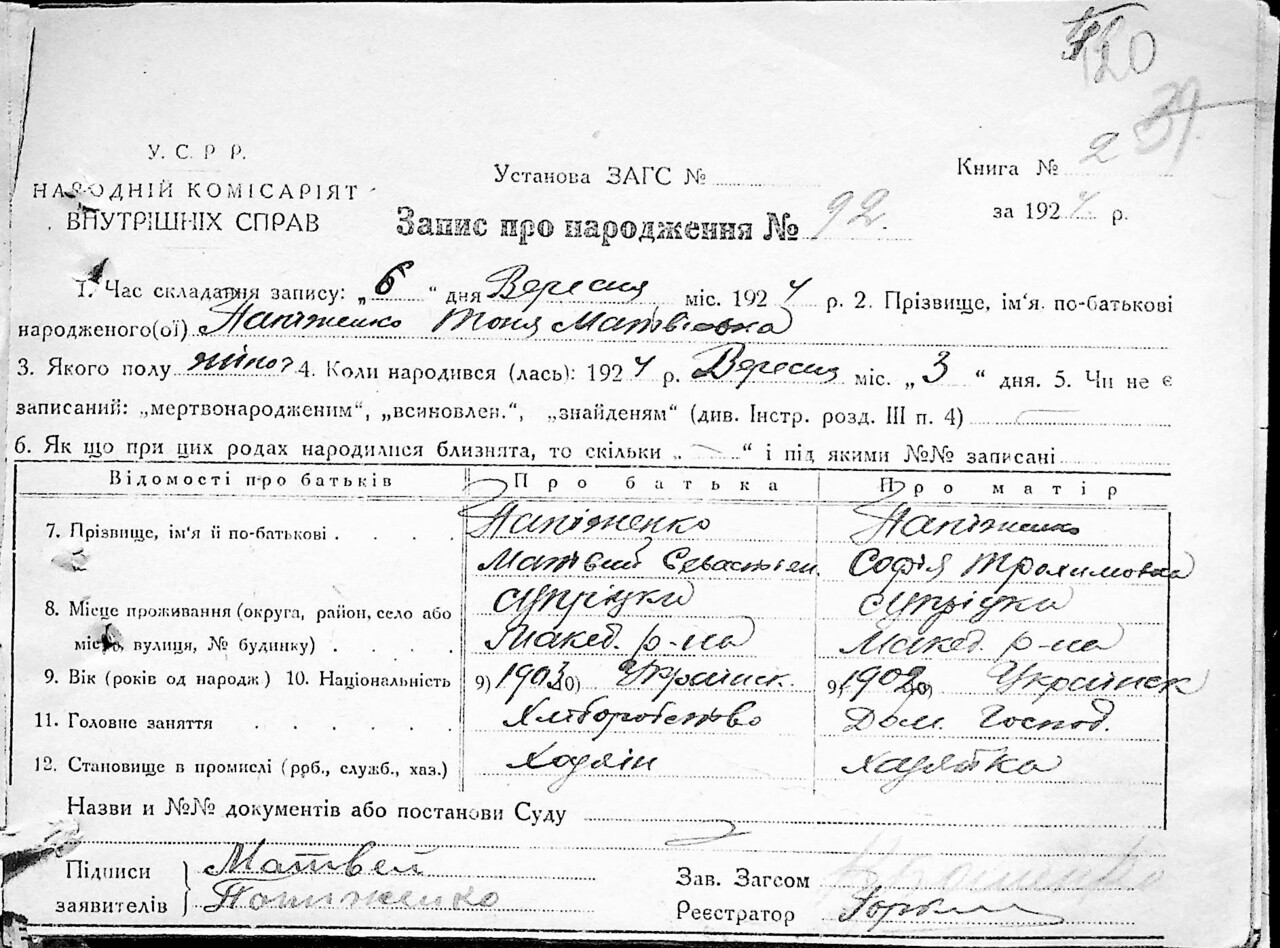 120
39
У. С. Р Р.
НАРОДНІЙ КОМІСАРІЯТ
ВНУТРІШНІХ СПРАВ
Установа ЗАГС №
Книга № 2
за 1924 р.
Запис про народження № 92.
1. Час складання запису: „6“ дня Вересня міс. 1924 р. 2. Прізвище, ім'я по-батькові
народженого(ої) Тоня Матвіовна
3. Якого полу жіноч 4. Коли народився (лась): 1924 р. Вересня міс. „3“ дня. 5. Чи не є
записаний: „мертвонародженим“, „всиновлен.“, „знайденям“ (див. Інстр. розд. III п. 4)
6. Як що при цих родах народилися близнята, то скільки „ “ і під якими №№ записані
Відомості про батьків Про батька Про матір
7. Прізвище, ім'я й по-батькові
Матвий Севастіян. Софія Трохимовна
8. Місце проживання (округа, район, село або
місто, вулиця, № будинку) Макед. р-на Макед. р-на
9. Вік (років од народж) 10. Національність 9) 1903 10) Украінск. 9) 1902 10) Украінск
11. Головне заняття Хліборобство Дом. Господ.
12. Становище в промислі (ррб., служб., хаз.) Хазяін Хазяйка
Назви и №№ документів або постанови Суду
Підписи
заявителів
Матвей
Зав. Загсом
Реєстратор